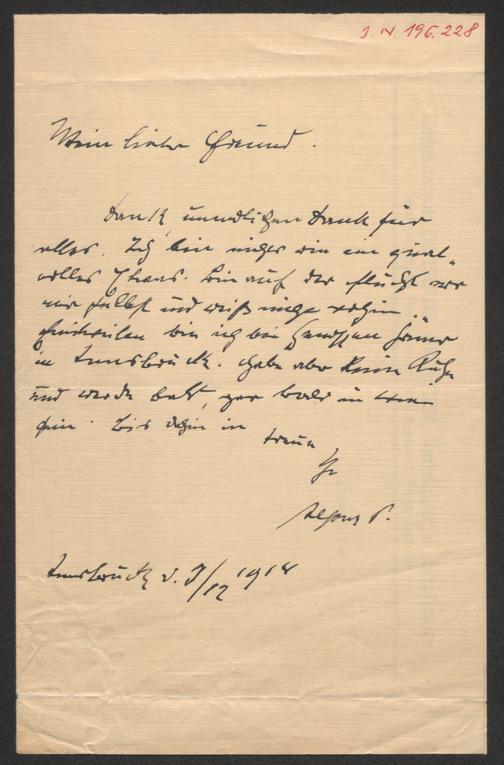 J. N. 196.228
Mein lieber Freund.
Dank, unendlichen Dank für
alles. Ich bin nichts wie ein qual-
volles Chaos. Bin auf der Flucht vor
mir selbst und weiß nicht wohin.
Einstweilen bin ich bei
in Innsbruck. Habe aber keine Ruhe
und werde bald, gar bald in Wien
sein. Bis dahin in
treue
Ihr
Alfons P.
Innsbruck d. 3/12 1918